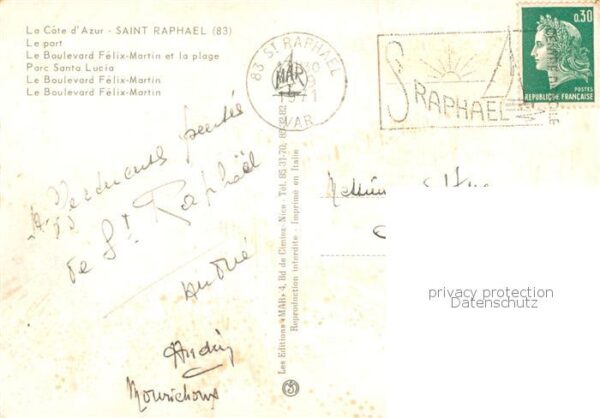 La Côte d'Azur - SAINT RAPHAEL (83)
Le port
Le Boulevard Félix-Martin et la plage
Parc Santa Lucia
Le Boulevard Félix-Martin
Le Boulevard Félix-Martin
83 ST RAPHAEL
VAR
MAR
S RAPHAEL
0,30
POSTES
REPUBLIQUE FRANÇAISE
pensées
de St Raphaël
André
André
Mourichoux
Les Editions «MAR» 4, Bd de Cimiez, Nice - Tél. 85-31-70, 85
Reproduction interdite - Imprimé en Italie
privacy protection
Datenschutz